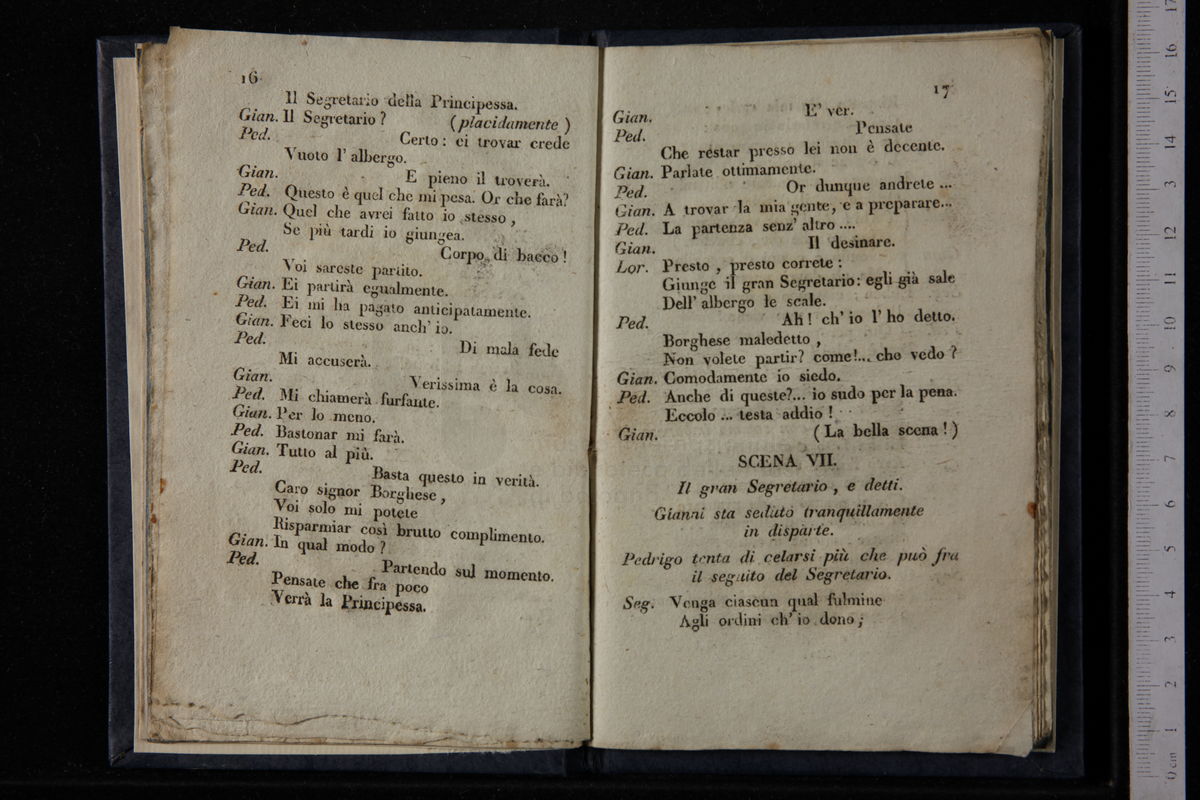 16
Il Segretario della Principessa.
Gian. Il Segretario ? (placidamente )
Ped. Certo : ci trovar crede
Vuoto l' albergo.
Gian. E pieno il troverà.
Ped. Questo è quel che mi pesa. Or che farà?
Gian. Quel che avrei fatto io stesso ,
Se più tardi io giungea.
Ped. Corpo di bacco !
Voi sareste partito.
Gian. Ei partirà egualmente.
Ped. Ei mi ha pagato anticipatamente.
Gian. Feci lo stesso anch' io.
Ped. Di mala fede
Mi accuserà.
Gian. Verissima è la cosa.
Ped. Mi chiamerà furfante.
Gian. Per lo meno.
Ped. Bastonar mi farà.
Gian. Tutto al più.
Ped. Basta questo in verità.
Caro signor Borghese ,
Voi solo mi potete
Risparmiar così brutto complimento.
Gian. In qual modo ?
Ped. Partendo sul momento.
Pensate che fra poco
Verrà la Principessa.
17
Gian. E' ver.
Ped. Pensate
Che restar presso lei non è decente.
Gian. Parlate ottimamente.
Ped. Or dunque andrete ...
Gian. A trovar la mia gente, e a preparare...
Ped. La partenza senz' altro ....
Gian. Il desinare.
Lor. Presto , presto correte :
Giunge il gran Segretario: egli già sale
Dell' albergo le scale.
Ped. Ah ! ch' io l' ho detto.
Borghese maledetto ,
Non volete partir? come!... che vedo ?
Gian. Comodamente io siedo.
Ped. Anche di queste?... io sudo per la pena.
Eccolo ... testa addio !
Gian. ( La bella scena ! )
SCENA VII.
Il gran Segretario , e detti.
Gianni sta seduto tranquillamente
in disparte.
Pedrigo tenta di celarsi più che può fra
il seguito del Segretario.
Seg. Venga ciascun qual fulmine
Agli ordini ch' io dono ;
0 cm 1 2 3 4 5 6 7 8 9 10 11 12 13 14 15 16 17